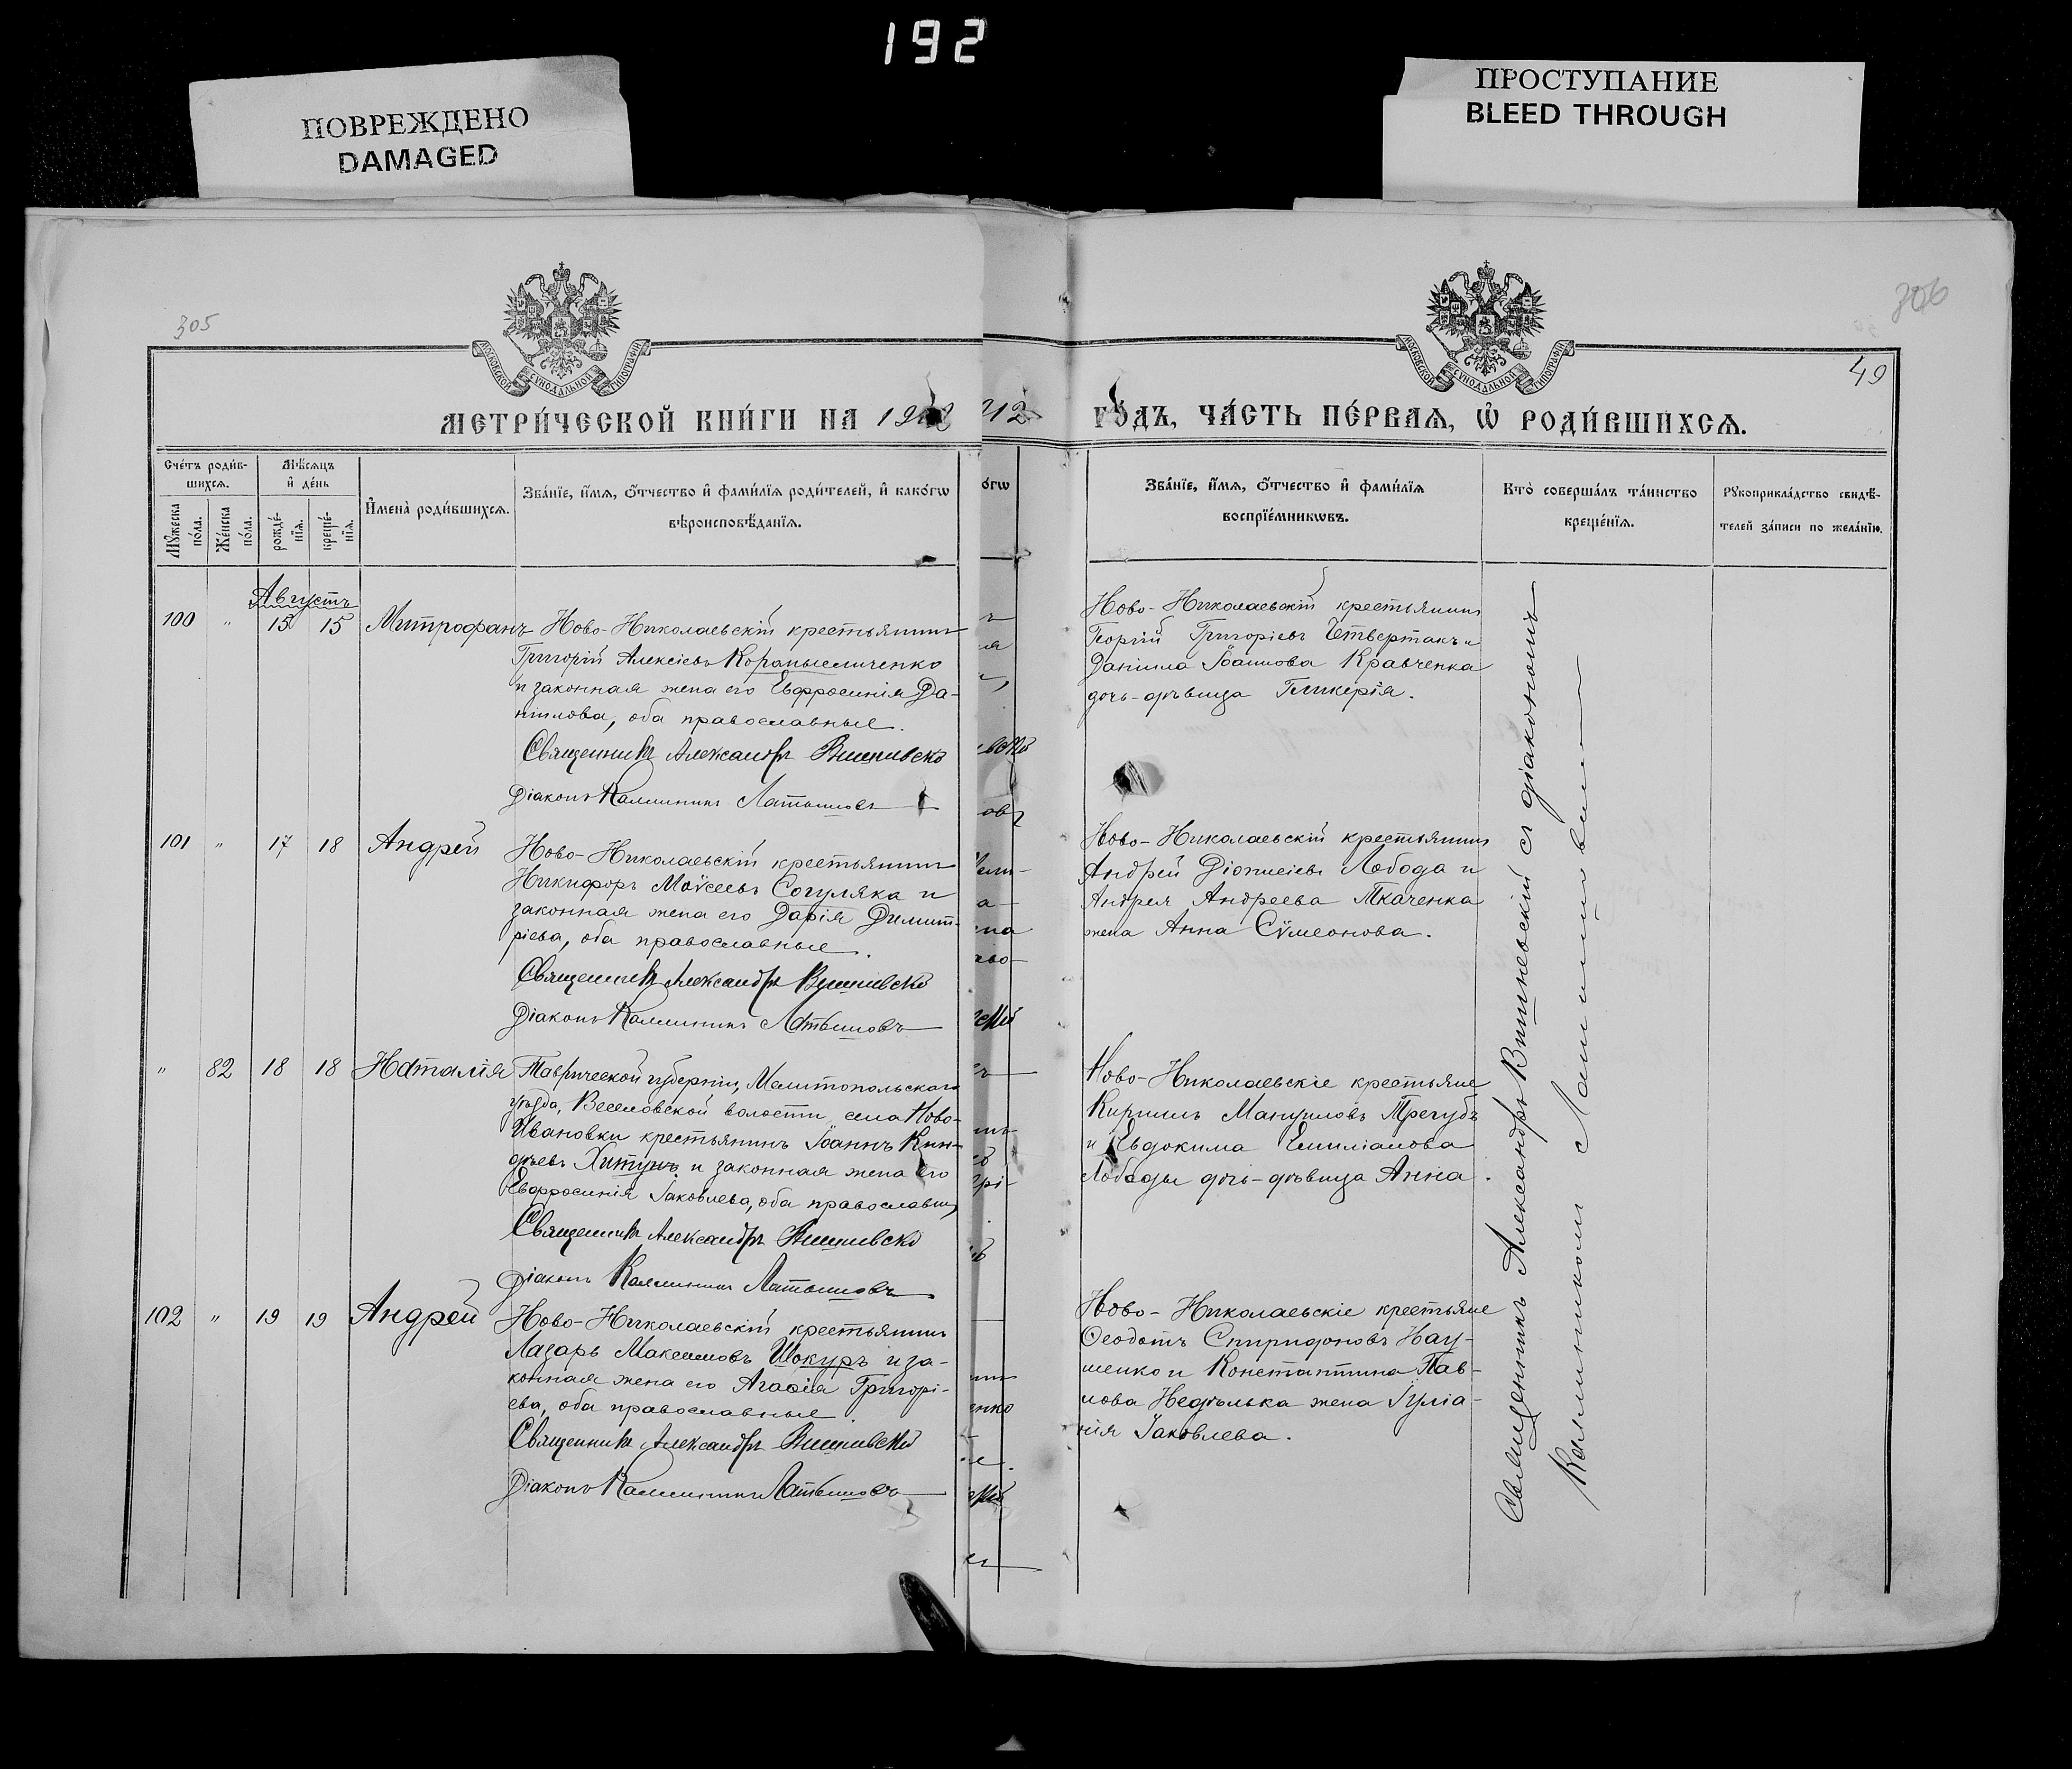 192
ПОВРЕЖДЕНО
DAMAGED
ПРОСТУПАНИЕ
BLEED THROUGH
305
306
49
МОСКОВСКОЙ СѴНОДАЛЬНОЙ ТИПОГРАФІИ
МОСКОВСКОЙ СѴНОДАЛЬНОЙ ТИПОГРАФІИ
МЕТРИ́ЧЕСКОЙ КНИ́ГИ НА 1912
ГО́ДЪ, ЧА́СТЬ ПЕ́РВАѦ, Ѿ РОДИ́ВШИХСѦ.
Сче́тъ роди́в-
шихсѧ.
Мꙋ́жеска по́ла.
Же́нска по́ла.
Мѣ́сѧцъ
и҆ де́нь
рожде́-
нїѧ.
креще́-
нїѧ.
И҆мена̀ роди́вшихсѧ.
Зва́нїе, и҆́мѧ, ѻ҆́тчество и҆ фами́лїѧ роди́телей, и҆ како́гѡ
вѣроисповѣ́данїѧ.
Зва́нїе, и҆́мѧ, ѻ҆́тчество и҆ фами́лїѧ
воспрїе́мникѡвъ.
Кто̀ соверша́лъ та́инство
креще́нїѧ.
Рꙋкоприкла́дство свидѣ́-
телей за́писи по жела́нїю.
Августъ
100 " 15 15 Митрофанъ Ново-Николаевскій крестьянинъ
Григорій Алексіевъ
и законная жена его Евфросинія Да-
ніилова, оба православные.
Священникъ Александръ Вишневскій
Діаконъ Каллиникъ Латышовъ
Ново-Николаевскій крестьянинъ
Георгій Григоріевъ Четвертакъ и
Даніила Іоаннова Кравченка
дочь-дѣвица Гликерія.
101 " 17 18 Андрей Ново-Николаевскій крестьянинъ
Никифоръ Моѵсеевъ Согуляка и
законная жена его Дарія Димит-
ріева, оба православные.
Священникъ Александръ Вишневскій
Діаконъ Каллиникъ Латышовъ
Ново-Николаевскій крестьянинъ
Андрей Діонисіевъ Лобода и
Андрея Андреева Ткаченка
жена Анна Сѵмеонова.
" 82 18 18 Наталія Таврической губерніи, Мелитопольскаго
уѣзда, Веселовской волости села Ново-
Ивановки крестьянинъ Іоаннъ Кин-
дѣевъ Хитунъ и законная жена его
Евфросинія Іаковлева, оба православны
Священникъ Александръ Вишневскій
Діаконъ Каллиникъ Латышовъ
Ново-Николаевскіе крестьяне
Кириллъ Мануиловъ Трегубъ
и Евдокима Емиліанова
Лободы дочь-дѣвица Анна.
102 " 19 19 Андрей Ново-Николаевскій крестьянинъ
Лазарь Максимовъ Шокуръ и за-
конная жена его Агаѳія Григорі-
ева, оба православные.
Священникъ Александръ Вишневскій
Діаконъ Каллиникъ Латышовъ
Ново-Николаевскіе крестьяне
Ѳеодотъ Спиридоновъ Нау-
менко и Константина Пав-
лова Недѣлька жена Іуліа-
нія Іаковлева.
Священникъ Александръ Вишневскій съ діакономъ
Каллиникомъ Латышовымъ